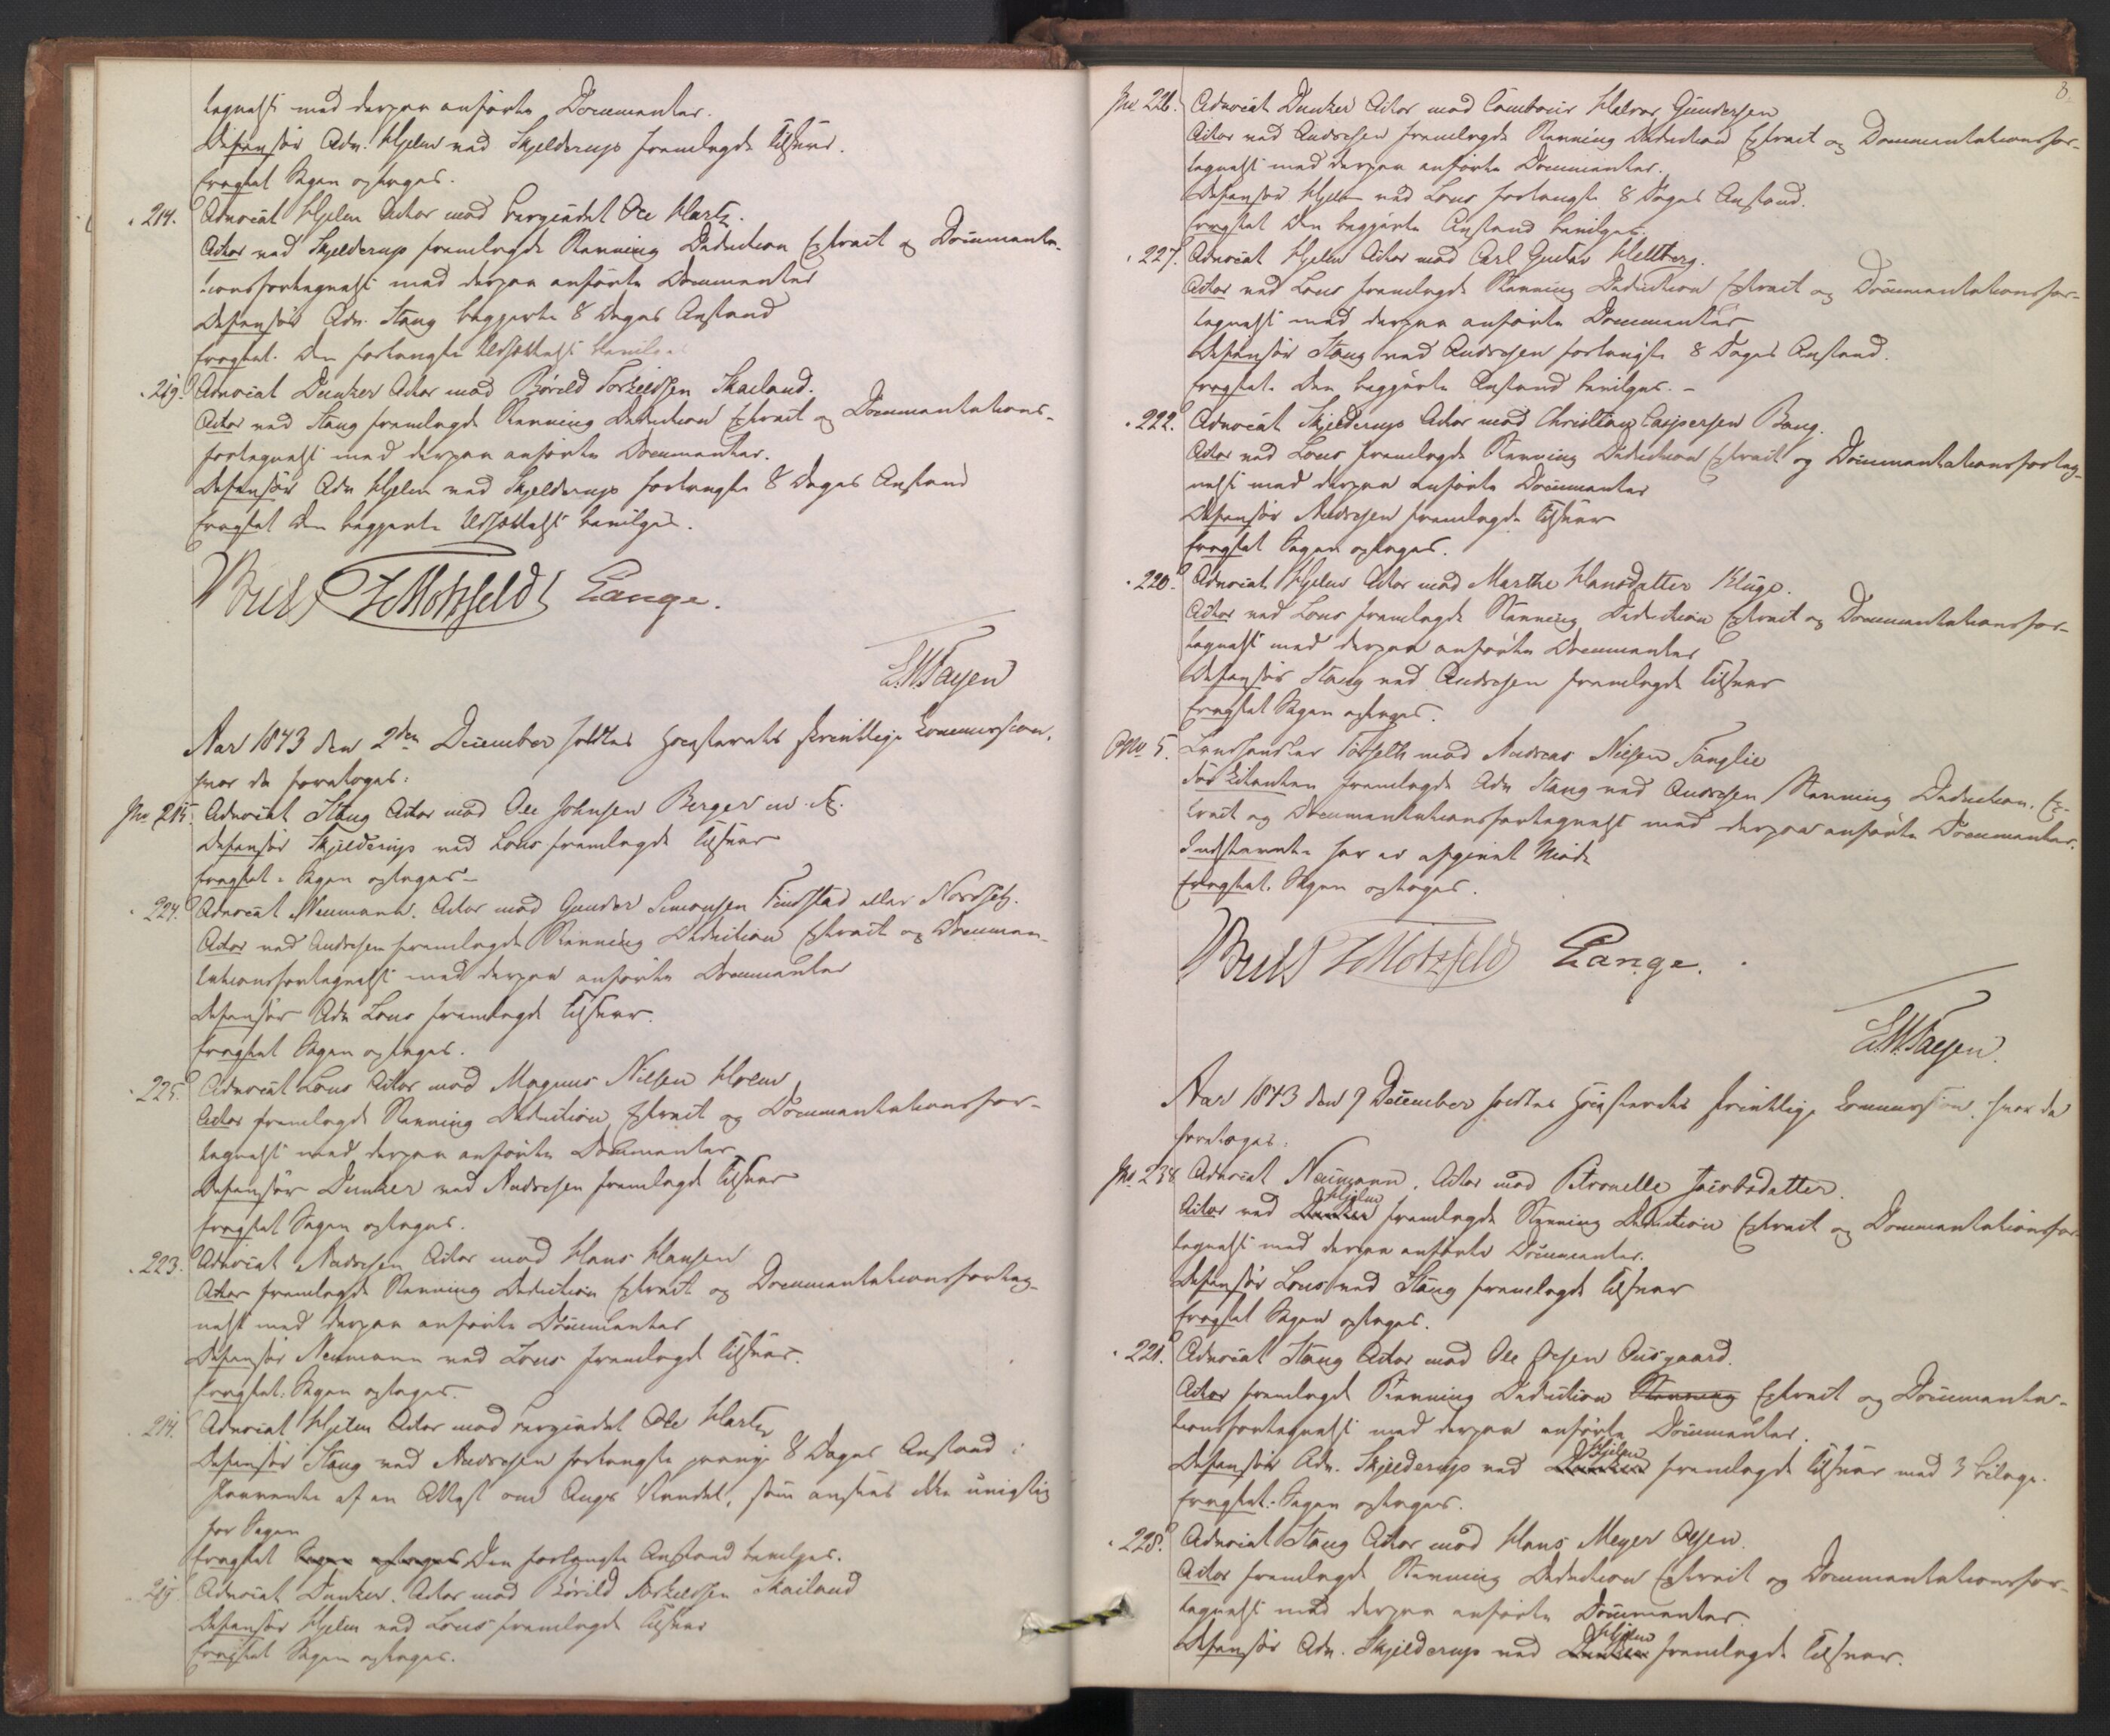 tegnelse med derpaa anførte Documenter.
Defensor Adv. Hjelm ved Skjelderup fremlagde Tilsvar.
Eragtet Sagen optages.
" 214. Advocat Hjelm Actor mod Ole Hartz.
Actor ved Skjelderup fremlagde Stevning Deduction Extract og Documenta-
tionsfortegnelse med derpaa anførte Documenter
Defensor Adv. Stang begjerte 8 Dages Anstand
Eragtet. Den forlangte Udsættelse bevilges
" 219. Advocat Dunker Actor mod Børeld Torkeldsen Skailand.
Actor ved Stang fremlagde Stevning Deduction Extract og Documentations-
fortegnelse med derpaa anførte Documenter.
Defensor Adv Hjelm ved Skjelderup forlangte 8 Dages Anstand
Eragtet Den begjerte Udsættelse bevilges.
Bull Motzfeldt Lange.
Fayen
Aar 1843 den 2den December holdtes Høiesterets skriftlige Commission,
hvor da foretoges:
No 215. Advocat Stang Actor mod Ole Johnsen Berger m. fl.
Defensor Skjelderup ved Lous fremlagde Tilsvar
Eragtet. Sagen optages.
" 224. Advocat Neumann. Actor mod Gunder Simonsen Findstad eller Nordsetz.
Actor ved Andresen fremlagde Stevning Deduction Extract og Documen-
tationsfortegnelse med derpaa anførte Documenter
Defensor Adv Lous fremlagde Tilsvar.
Eragtet Sagen optages.
" 225. Advocat Lous Actor mod Magnus Nielsen Holm
Actor fremlagde Stevning Deduction, Extract og Documentationsfor-
tegnelse med derpaa anførte Documenter
Defensor Dunker ved Andresen fremlagde Tilsvar
Eragtet Sagen optages.
" 223. Advocat Andresen Actor mod Hans Hansen
Actor fremlagde Stevning Deduction Extract og Documentationsforteg-
nelse med derpaa anførte Documenter
Defensor Neumann ved Lous fremlagde Tilsvar.
Eragtet. Sagen optages.
" 214. Advocat Hjelm Actor mod Ole Hartz
Defensor Stang ved Andresen forlangte 8 Dages Anstand i
af en Attest om Angs Vandel, som ansees ikke uvigtig
for Sagen
Eragtet Sagen optages Den forlangte Anstand bevilges.
" 219 Advocat Dunker. Actor mod Børild Torkeldsen Skailand
Defensor Hjelm ved Lous fremlagde Tilsvar
Eragtet Sagen optages.
8.
No 226. Advocat Dunker Actor mod Tambour Halvor Gundersen
Actor ved Andresen fremlagde Stevning Deduction Extract og Documentationsfor-
tegnelse med derpaa anførte Documenter.
Defensor Hjelm ved Lous forlangte 8 Dages Anstand.
Eragtet Den begjærte Anstand bevilges.
" 227. Advocat Hjelm Actor mod Carl Gustav Hellberg.
Actor ved Lous fremlagde Stevning Deduction Extract og Documentationsfor-
tegnelse med derpaa anførte Documenter
Defensor Stang ved Andresen forlangte 8 Dages Anstand.
Eragtet. Den begjærte Anstand bevilges. -
" 222. Advocat Skjelderup Actor mod Christian Caspersen Bang.
Actor ved Lous fremlagde Stevning Deduction Extract og Documentationsforteg-
nelse med derpaa anførte Documenter
Defensor Andresen fremlagde Tilsvar
Eragtet Sagen optages.
" 220. Advocat Hjelm Actor mod Marthe Hansdatter Kluge.
Actor ved Lous fremlagde Stevning Deduction Extract og Documentationsfor-
tegnelse med derpaa anførte Documenter
Defensor Stang ved Andresen fremlagde Tilsvar
Eragtet Sagen optages.
No 5. Landhandler Tørseth mod Andreas Nielsen Fanglie
For Citanten fremlagde Adv Stang ved Andresen Stevning Deduction. Ex-
tract og Documentationsfortegnelse med derpaa anførte Documenter.
Indstevnte har ei afgivet Møde
Eragtet. Sagen optages.
Bull Motzfeldt Lange.
Fayen.
Aar 1843 den 9 December holdtes Høiesterets skriftlige Commission, hvor da
foretoges:
No. 238 Advocat Neumann. Actor mod Petronelle Jacobsdatter.
Actor ved Dunker Hjelm fremlagde Stevning Deduction Extract og Documentationsfor-
tegnelse med derpaa anførte Documenter.
Defensor Lous ved Stang fremlagde Tilsvar
Eragtet Sagen optages.
" 221. Advocat Stang Actor mod Ole Olsen Ousgaard.
Actor fremlagde Stevning Deduction Stevning Extract og Documenta-
tionsfortegnelse med derpaa anførte Documenter.
Defensor Adv. Skjelderup ved Dunker Hjelm fremlagde Tilsvar med 3 Bilage.
Eragtet. Sagen optages.
" 228. Advocat Stang Actor mod Hans Meyer Olsen.
Actor fremlagde Stevning Deduction Extract og Documentationsfor-
tegnelse med derpaa anførte Documenter.
Defensor Adv. Skjelderup ved Dunker Hjelm fremlagde Tilsvar.